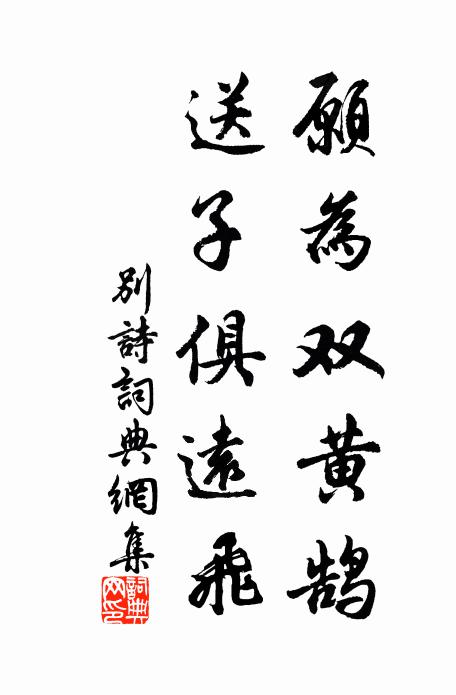 願為双黄鹄
送子俱遠飛
別詩詞典網集
詞典网印